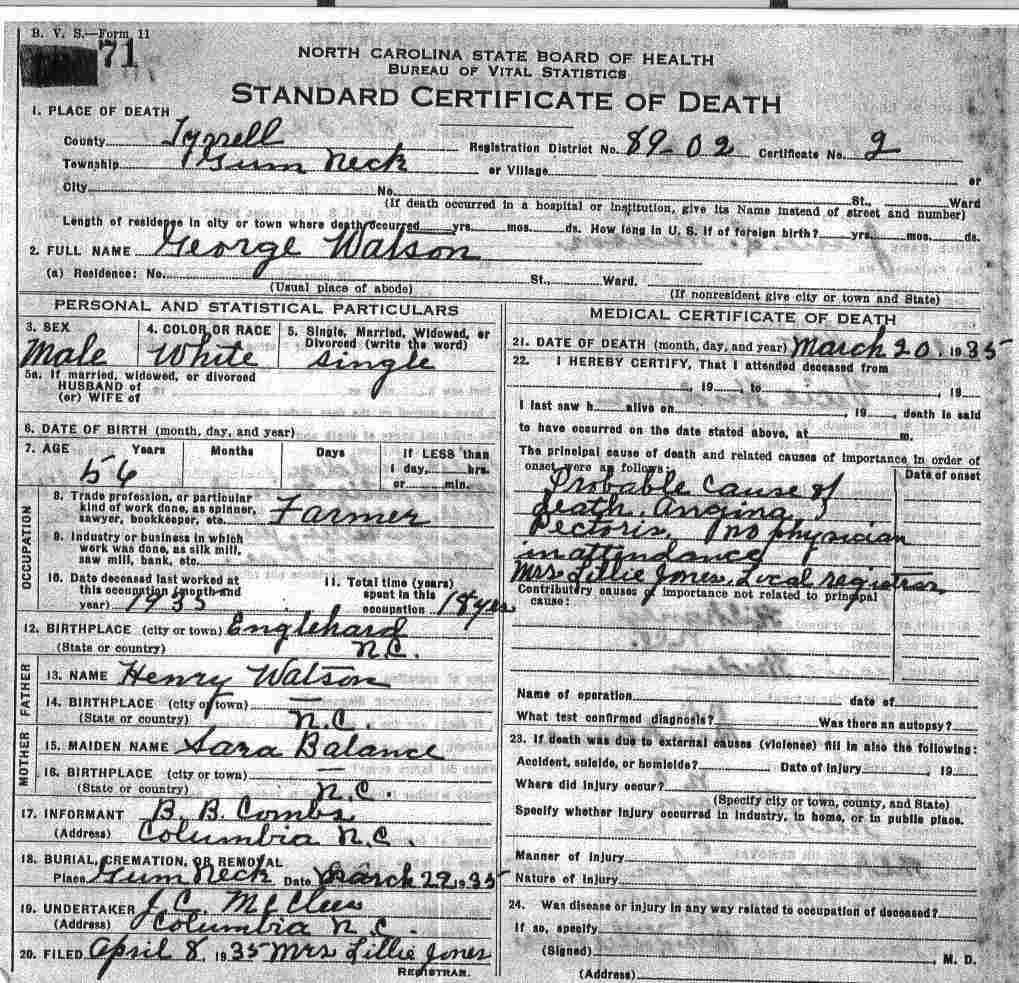 B. V. S.—Form 11
71
NORTH CAROLINA STATE BOARD OF HEALTH
BUREAU OF VITAL STATISTICS
STANDARD CERTIFICATE OF DEATH
1. PLACE OF DEATH
County Tyrrell Registration District No. 89-02 Certificate No. 2
Township Gum Neck or Village or
City No. St., Ward
(If death occurred in a hospital or institution, give its Name instead of street and number)
Length of residence in city or town where death occurred yrs. mos. ds. How long in U. S. if of foreign birth? yrs. mos. ds.
2. FULL NAME George Watson
(a) Residence: No. St., Ward.
(Usual place of abode) (If nonresident give city or town and State)
PERSONAL AND STATISTICAL PARTICULARS
3. SEX 4. COLOR OR RACE 5. Single, Married, Widowed, or
Divorced (write the word)
Male White single
5a. If married, widowed, or divorced
HUSBAND of
(or) WIFE of
6. DATE OF BIRTH (month, day, and year)
7. AGE Years Months Days If LESS than
1 day, hrs.
56 or min.
OCCUPATION
8. Trade profession, or particular
kind of work done, as spinner,
sawyer, bookkeeper, etc. Farmer
9. Industry or business in which
work was done, as silk mill,
saw mill, bank, etc.
10. Date deceased last worked at
this occupation (month and
year) 1935
11. Total time (years)
spent in this
occupation 18 yrs
12. BIRTHPLACE (city or town) Englehard
(State or country) N.C.
FATHER
13. NAME Henry Watson
14. BIRTHPLACE (city or town) —
(State or country) N.C.
MOTHER
15. MAIDEN NAME Sara Balance
16. BIRTHPLACE (city or town) —
(State or country) N.C.
17. INFORMANT B. B. Combs
(Address) Columbia N.C.
18. BURIAL, CREMATION, OR REMOVAL
Place Gum Neck Date March 22 1935
19. UNDERTAKER J. C. McClees
(Address) Columbia N.C.
20. FILED April 8, 1935 Mrs Lillie Jones
REGISTRAR.
MEDICAL CERTIFICATE OF DEATH
21. DATE OF DEATH (month, day, and year) March 20, 1935
22. I HEREBY CERTIFY, That I attended deceased from
, 19 to , 19
I last saw h alive on , 19 , death is said
to have occurred on the date stated above, at m.
The principal cause of death and related causes of importance in order of
onset were as follows: Date of onset
Probable cause of
death. Angina
Pectoris. No physician
in attendance
Mrs. Lillie Jones, Local registrar
Contributory causes of importance not related to principal
cause:
Name of operation date of
What test confirmed diagnosis? Was there an autopsy?
23. If death was due to external causes (violence) fill in also the following:
Accident, suicide, or homicide? Date of injury , 19
Where did injury occur?
(Specify city or town, county, and State)
Specify whether injury occurred in industry, in home, or in public place.
Manner of injury
Nature of injury
24. Was disease or injury in any way related to occupation of deceased?
If so, specify
(Signed) , M. D.
(Address)